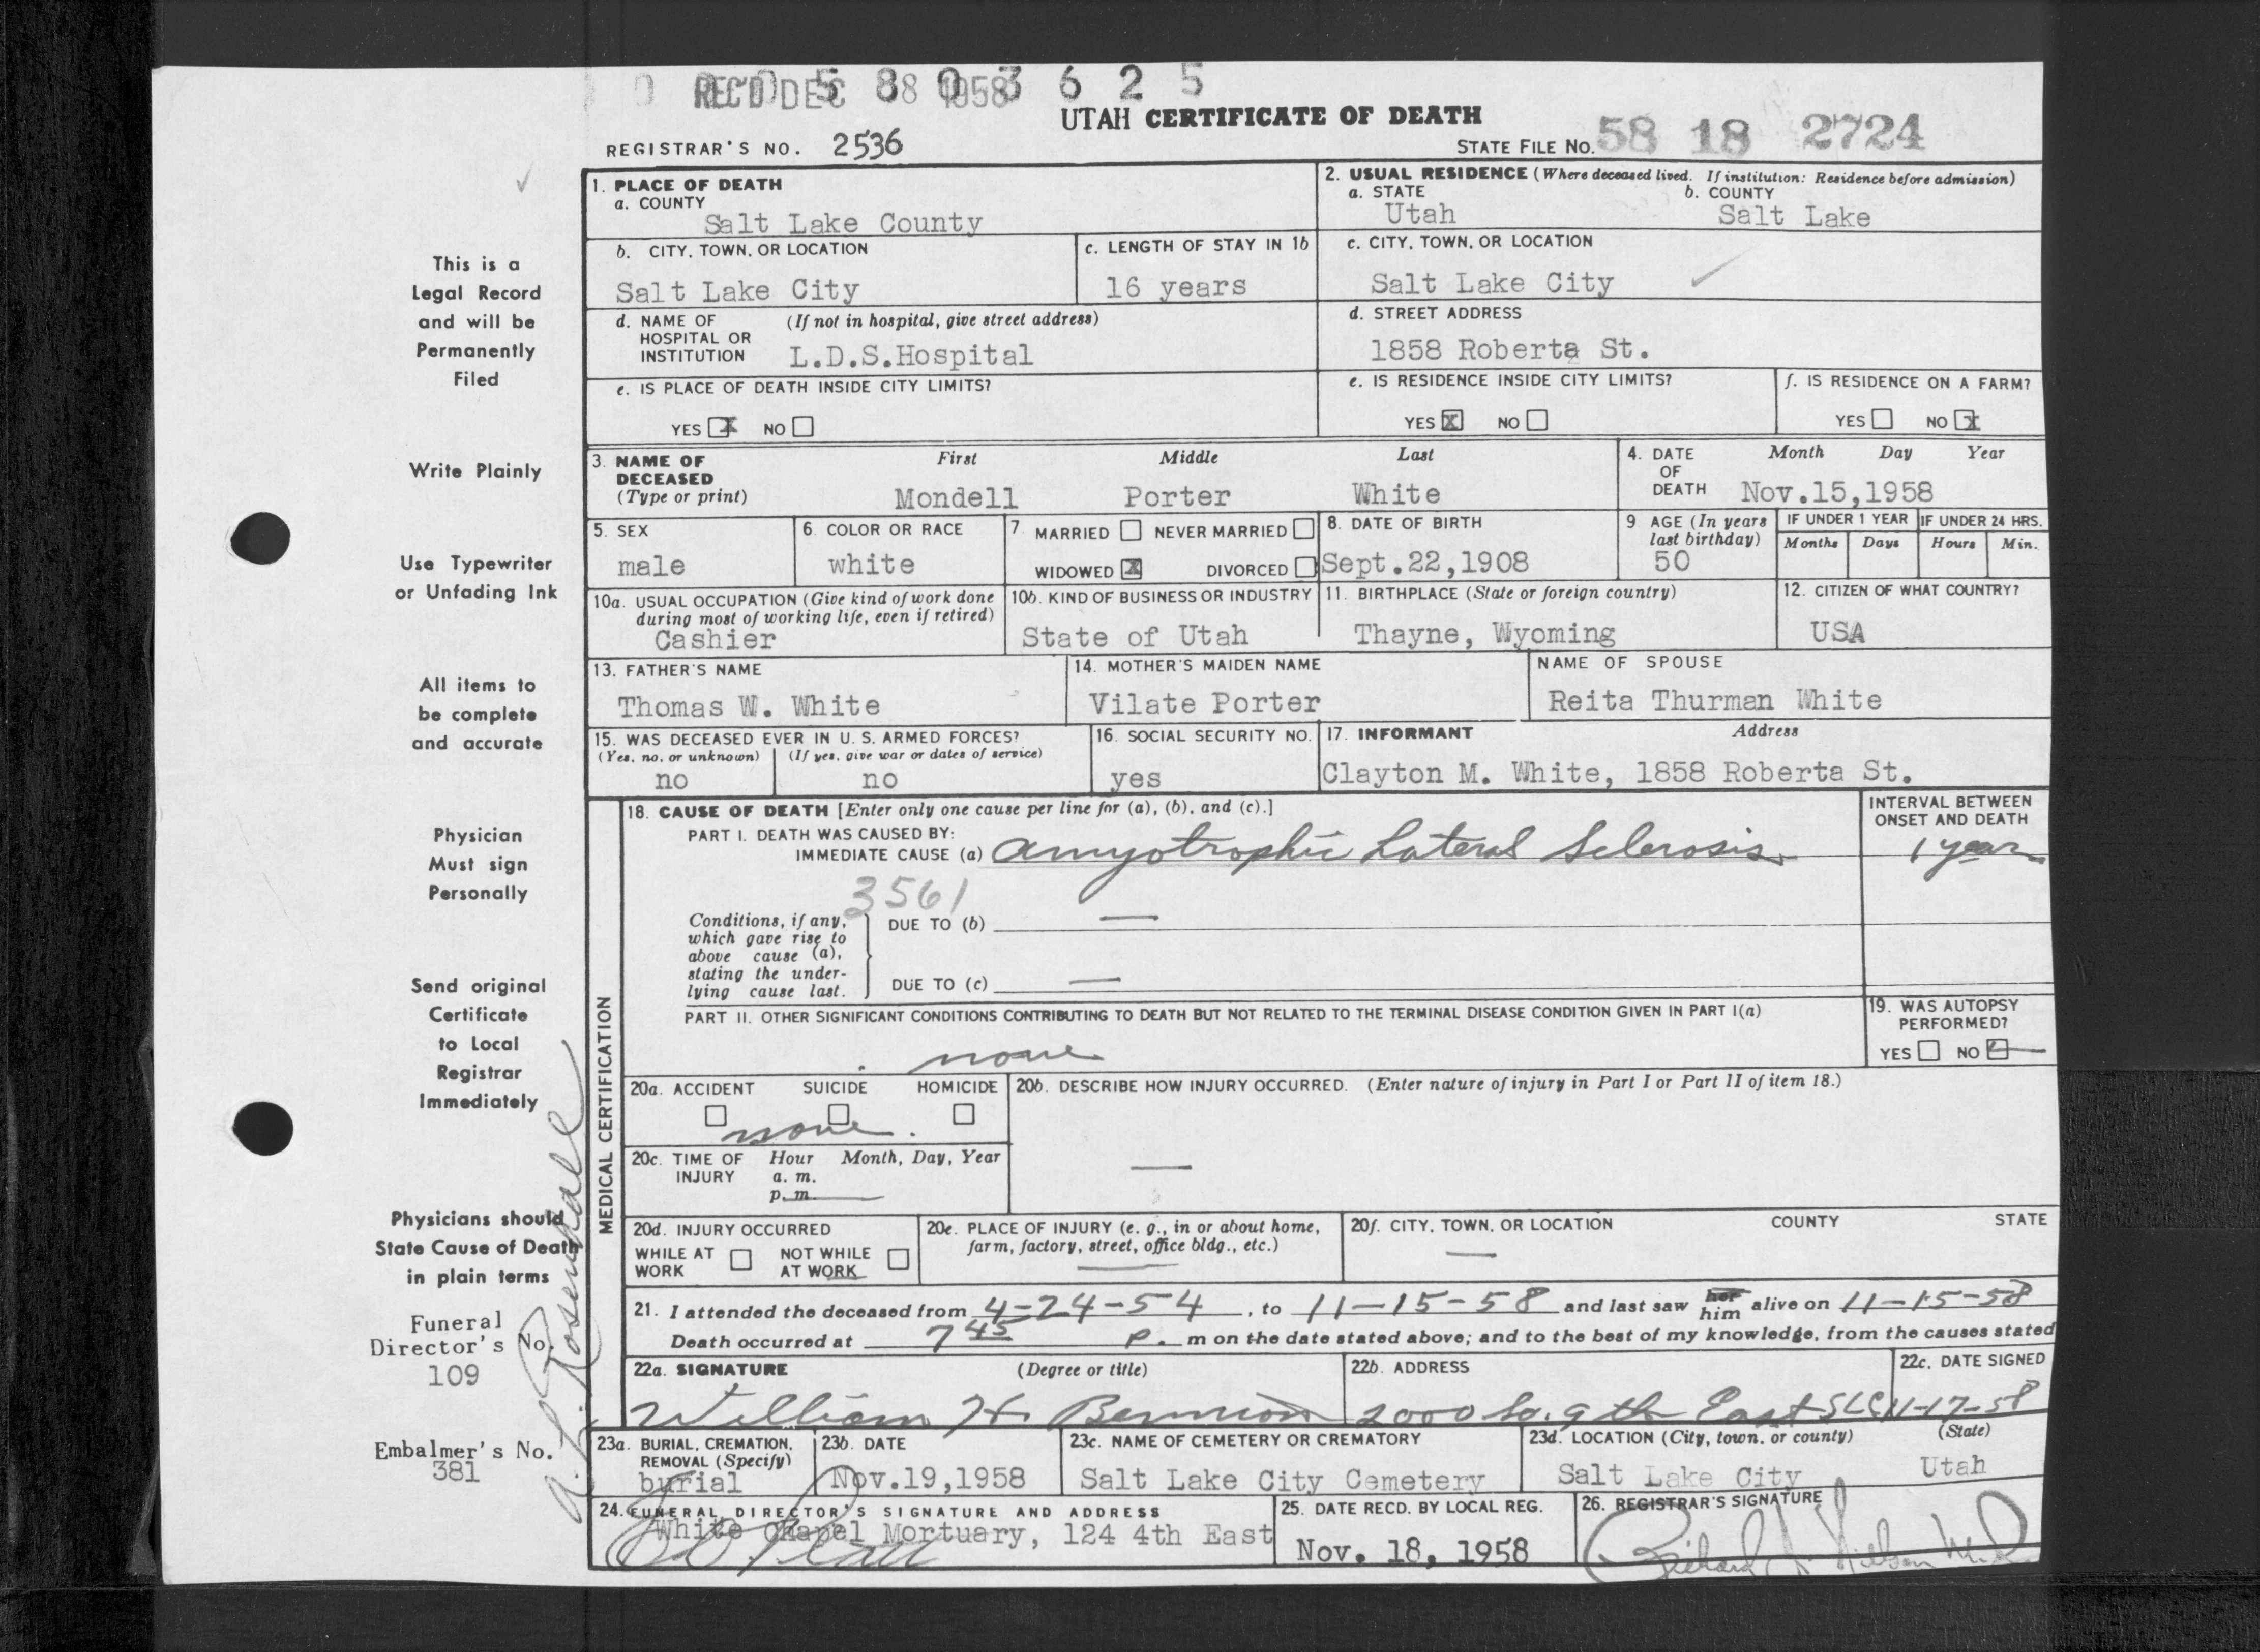 REC'D DEC 8 1958
5 8 0 3 6 2 5
UTAH CERTIFICATE OF DEATH
REGISTRAR'S NO. 2536
STATE FILE NO. 58 18 2724
This is a
Legal Record
and will be
Permanently
Filed
Write Plainly
Use Typewriter
or Unfading Ink
All items to
be complete
and accurate
Physician
Must sign
Personally
Send original
Certificate
to Local
Registrar
Immediately
Physicians should
State Cause of Death
in plain terms
Funeral
Director's No.
109
Embalmer's No.
381
1. PLACE OF DEATH
a. COUNTY
Salt Lake County
2. USUAL RESIDENCE (Where deceased lived. If institution: Residence before admission)
a. STATE b. COUNTY
Utah Salt Lake
b. CITY, TOWN, OR LOCATION
Salt Lake City
c. LENGTH OF STAY IN 1b
16 years
c. CITY, TOWN, OR LOCATION
Salt Lake City
d. NAME OF (If not in hospital, give street address)
HOSPITAL OR
INSTITUTION L.D.S.Hospital
d. STREET ADDRESS
1858 Roberta St.
e. IS PLACE OF DEATH INSIDE CITY LIMITS?
YES X NO
e. IS RESIDENCE INSIDE CITY LIMITS?
YES X NO
f. IS RESIDENCE ON A FARM?
YES NO X
3. NAME OF First Middle Last
DECEASED
(Type or print) Mondell Porter White
4. DATE Month Day Year
OF
DEATH Nov.15,1958
5. SEX
male
6. COLOR OR RACE
white
7. MARRIED NEVER MARRIED
WIDOWED X DIVORCED
8. DATE OF BIRTH
Sept.22,1908
9 AGE (In years
last birthday)
50
IF UNDER 1 YEAR IF UNDER 24 HRS.
Months Days Hours Min.
10a. USUAL OCCUPATION (Give kind of work done
during most of working life, even if retired)
Cashier
10b. KIND OF BUSINESS OR INDUSTRY
State of Utah
11. BIRTHPLACE (State or foreign country)
Thayne, Wyoming
12. CITIZEN OF WHAT COUNTRY?
USA
13. FATHER'S NAME
Thomas W. White
14. MOTHER'S MAIDEN NAME
Vilate Porter
NAME OF SPOUSE
Reita Thurman White
15. WAS DECEASED EVER IN U. S. ARMED FORCES?
(Yes, no, or unknown) (If yes, give war or dates of service)
no no
16. SOCIAL SECURITY NO.
yes
17. INFORMANT Address
Clayton M. White, 1858 Roberta St.
MEDICAL CERTIFICATION
18. CAUSE OF DEATH [Enter only one cause per line for (a), (b), and (c).]
INTERVAL BETWEEN
ONSET AND DEATH
PART I. DEATH WAS CAUSED BY:
IMMEDIATE CAUSE (a) Amyotrophic Lateral Sclerosis 1 year
3561
Conditions, if any,
which gave rise to
above cause (a),
stating the under-
lying cause last.
DUE TO (b) —
DUE TO (c) —
PART II. OTHER SIGNIFICANT CONDITIONS CONTRIBUTING TO DEATH BUT NOT RELATED TO THE TERMINAL DISEASE CONDITION GIVEN IN PART I(a)
none
19. WAS AUTOPSY
PERFORMED?
YES NO
20a. ACCIDENT SUICIDE HOMICIDE
none
20b. DESCRIBE HOW INJURY OCCURRED. (Enter nature of injury in Part I or Part II of item 18.)
—
20c. TIME OF Hour Month, Day, Year
INJURY a. m.
p. m.
20d. INJURY OCCURRED
WHILE AT NOT WHILE
WORK AT WORK
20e. PLACE OF INJURY (e. g., in or about home,
farm, factory, street, office bldg., etc.)
20f. CITY, TOWN, OR LOCATION COUNTY STATE
—
21. I attended the deceased from 4-24-54, to 11-15-58 and last saw her him alive on 11-15-58
Death occurred at 7 45 p. m on the date stated above; and to the best of my knowledge, from the causes stated
22a. SIGNATURE (Degree or title)
William H. Bennion
22b. ADDRESS
2000 So. 9th East SLC
22c. DATE SIGNED
11-17-58
23a. BURIAL, CREMATION,
REMOVAL (Specify)
burial
23b. DATE
Nov.19,1958
23c. NAME OF CEMETERY OR CREMATORY
Salt Lake City Cemetery
23d. LOCATION (City, town, or county) (State)
Salt Lake City Utah
24. FUNERAL DIRECTOR'S SIGNATURE AND ADDRESS
White Chapel Mortuary, 124 4th East
25. DATE RECD. BY LOCAL REG.
Nov. 18, 1958
26. REGISTRAR'S SIGNATURE